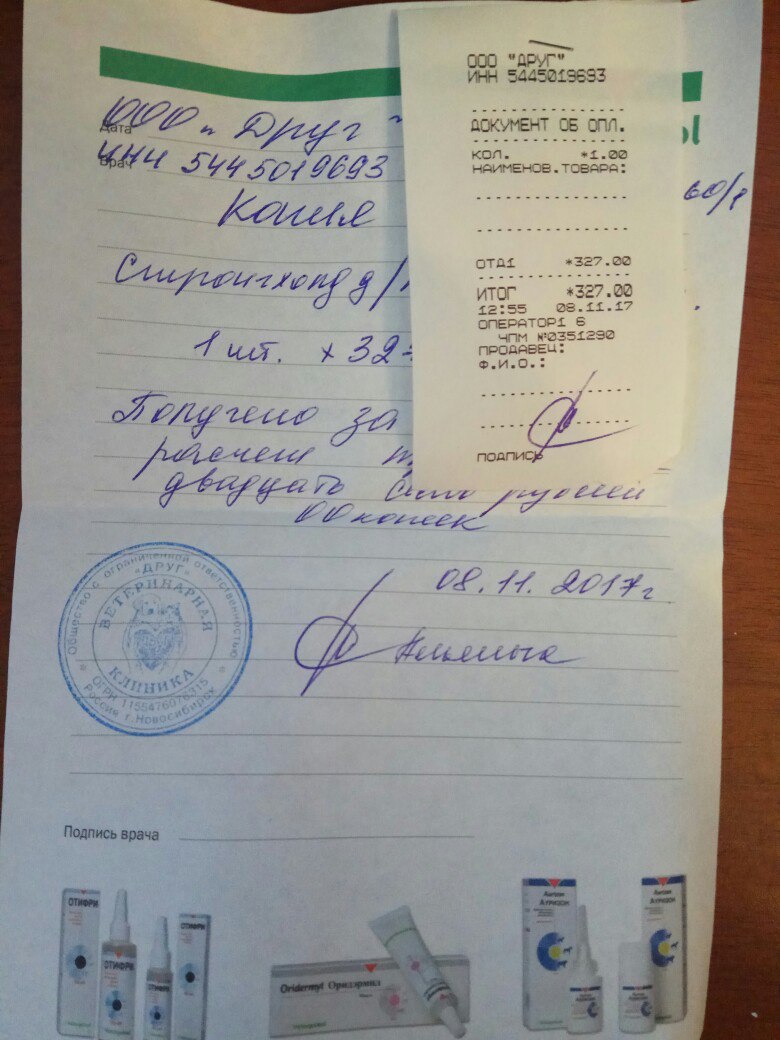 ООО "ДРУГ"
ИНН 5445019693
ДОКУМЕНТ ОБ ОПЛ.
КОЛ. *1.00
НАИМЕНОВ.ТОВАРА:
ОТД1 *327.00
ИТОГ *327.00
12:55 08.11.17
ОПЕРАТОР1 6
ЧПМ №0351290
ПРОДАВЕЦ:
Ф.И.О.:
ПОДПИСЬ
Ы
Дата
ООО "Друг"
Врач
ИНН 5445019693
60/
Стронгхолд д/
1 шт. х 32
Получено за
расчет
двадцать семь рублей
00 копеек
08.11.2017г
Общество с ограниченной ответственностью
«ДРУГ»
ВЕТЕРИНАРНАЯ
КЛИНИКА
ОГРН 1155476076315
Россия г.Новосибирск
Подпись врача
ОТИФРИ
ОТИФРИ
ОТИФРИ
Oridermyl Оридермил
Ауризон
Ауризон